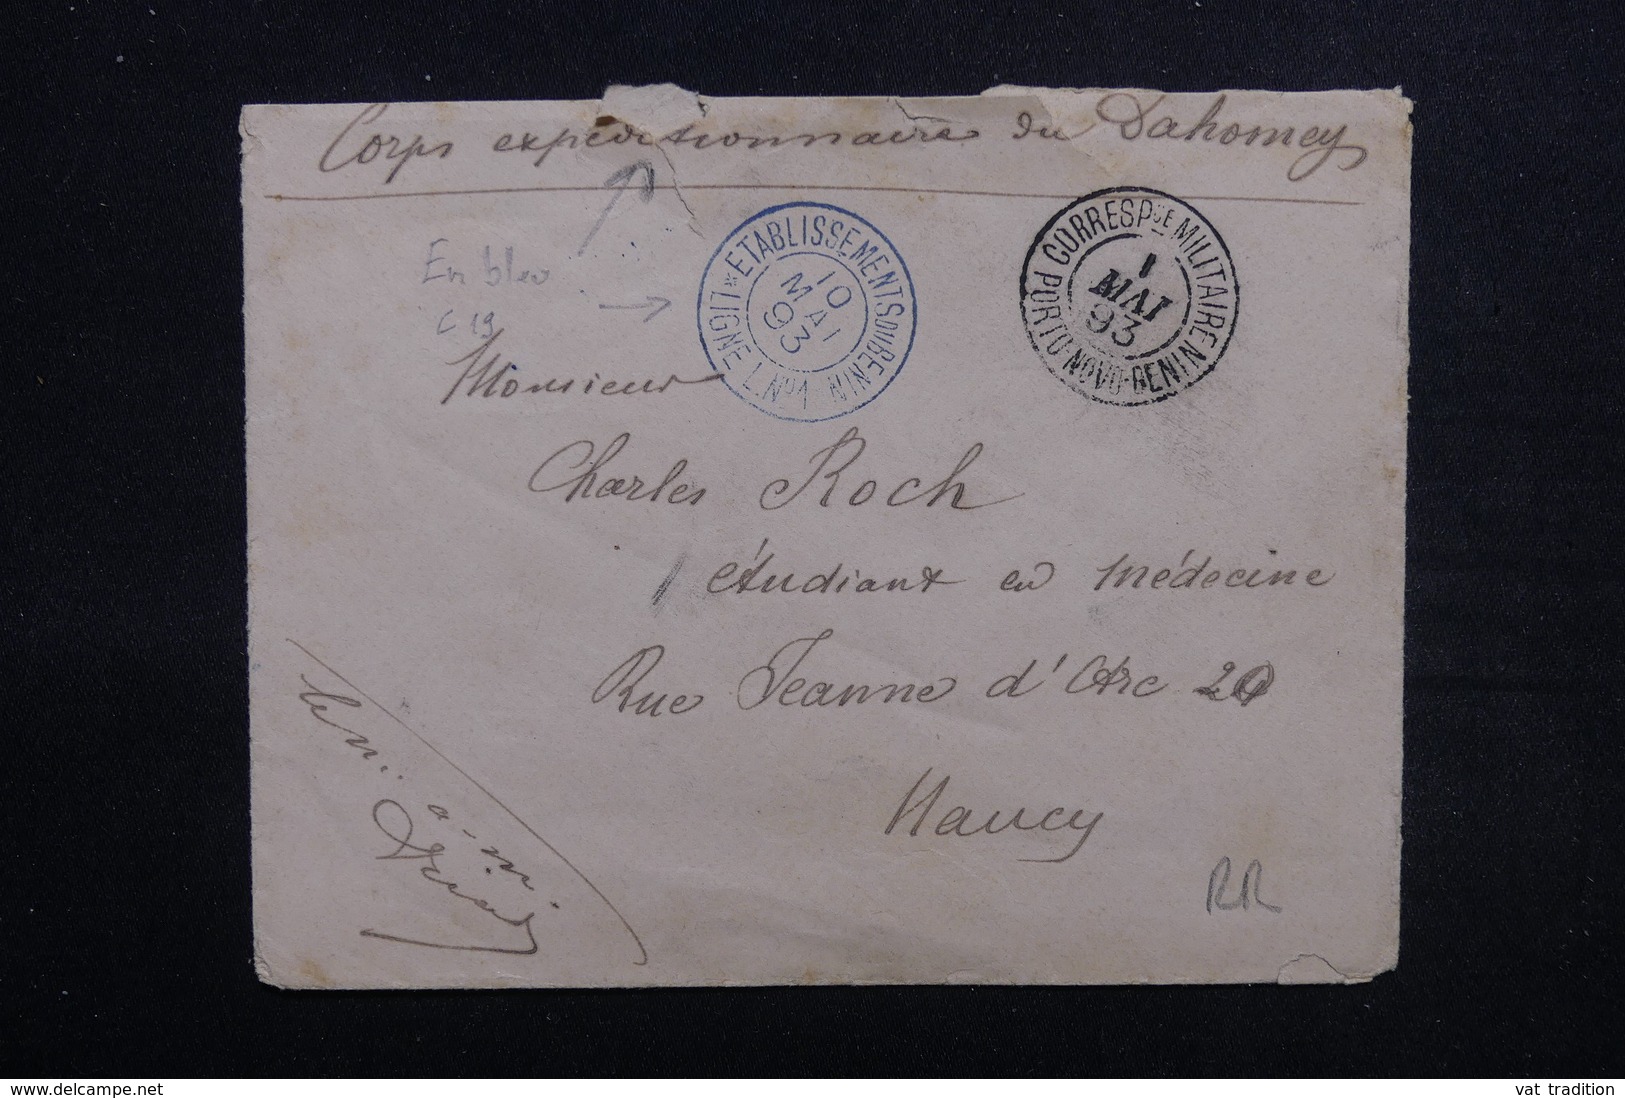 Corps expéditionnaire du Dahomey
En bleu
C 19
ETABLISSEMENTS DU BENIN
10
MAI
93
* LIGNE L.N°1
CORRESPce MILITAIRE
1
MAI
93
PORTO-NOVO-BENIN
Monsieur
Charles Roch
étudiant en médecine
Rue Jeanne d'Arc 20
Nancy
RR
delcampe.net
vat tradition